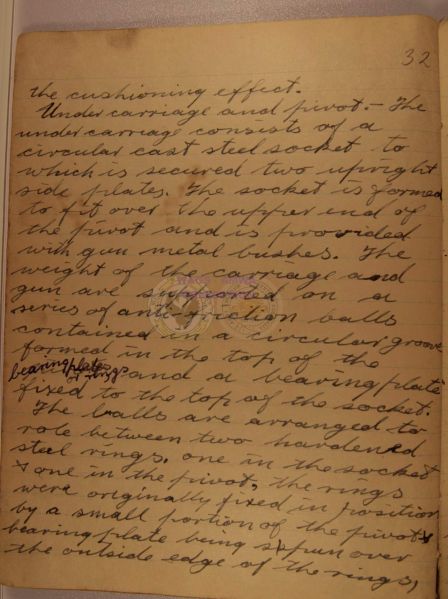 32
the cushioning effect.
Under carriage and pivot. - The
under carriage consists of a
circular cast steel socket to
which is secured two upright
side plates. The socket is formed
to fit over the upper end of
the pivot and is provided
with gun metal bushes. The
weight of the carriage and
gun are supported on a
series of anti-friction balls
contained in a circular groove
formed in the top of the
bearing plates
or rings and a bearing plate
fixed to the top of the socket.
The balls are arranged to
role between two hardened
steel rings. one in the socket
& one in the pivot, the rings
were originally fixed in position
by a small portion of the pivot &
bearing plate being spun over
the outside edge of the rings,